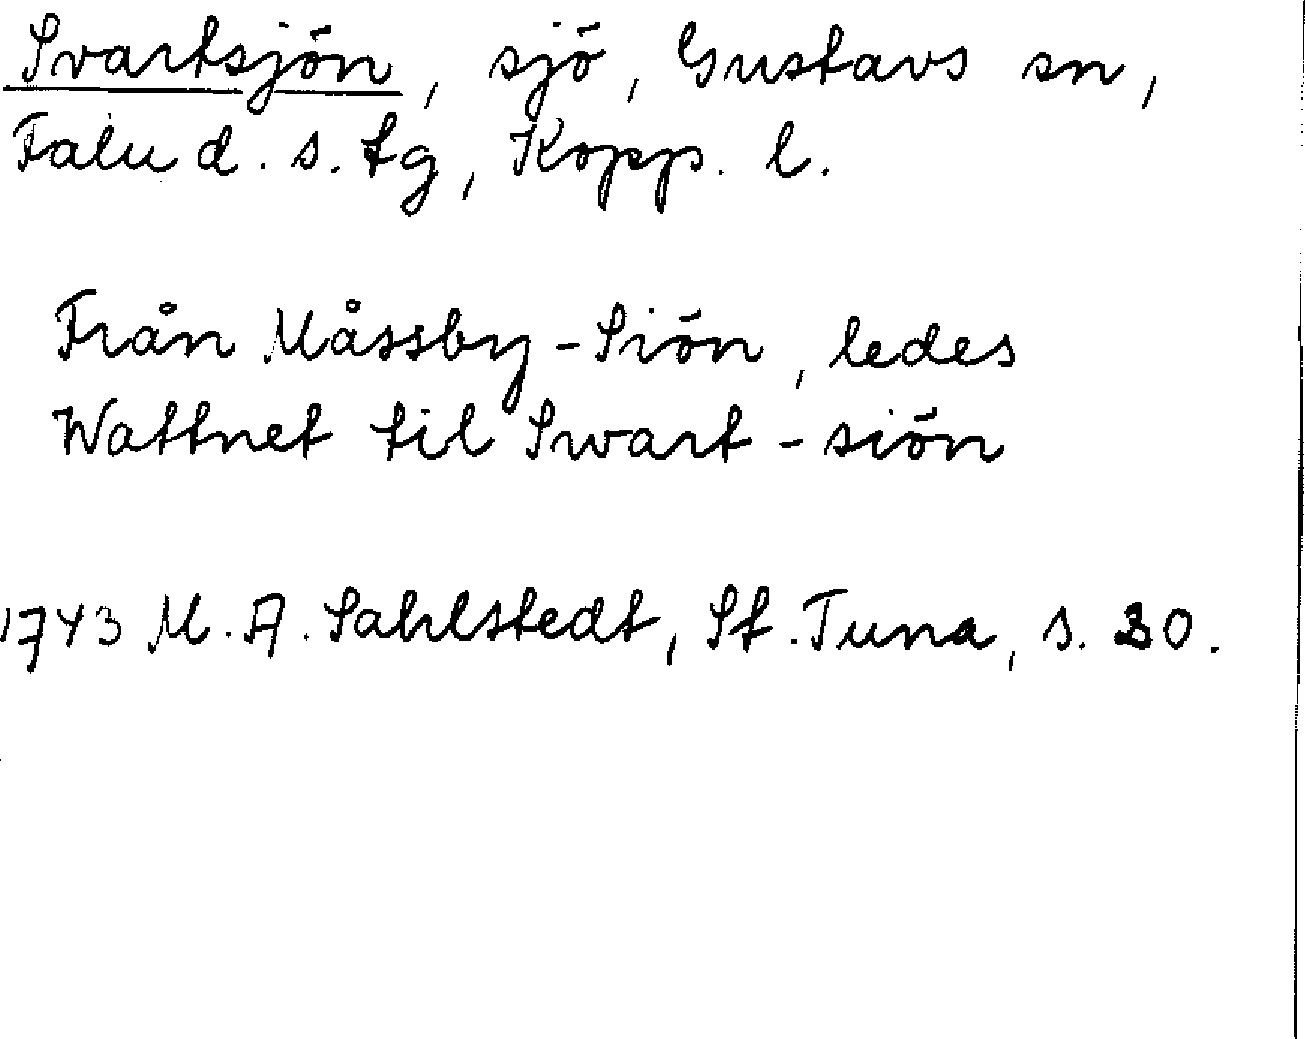 Svartsjön, sjö, Gustavs sn,
Falu d. s. tg, Kopp. l.
Från Måssby-Siön, ledes
Wattnet til Swart-siön
1743 M. A. Sahlstedt, St. Tuna, s. 30.